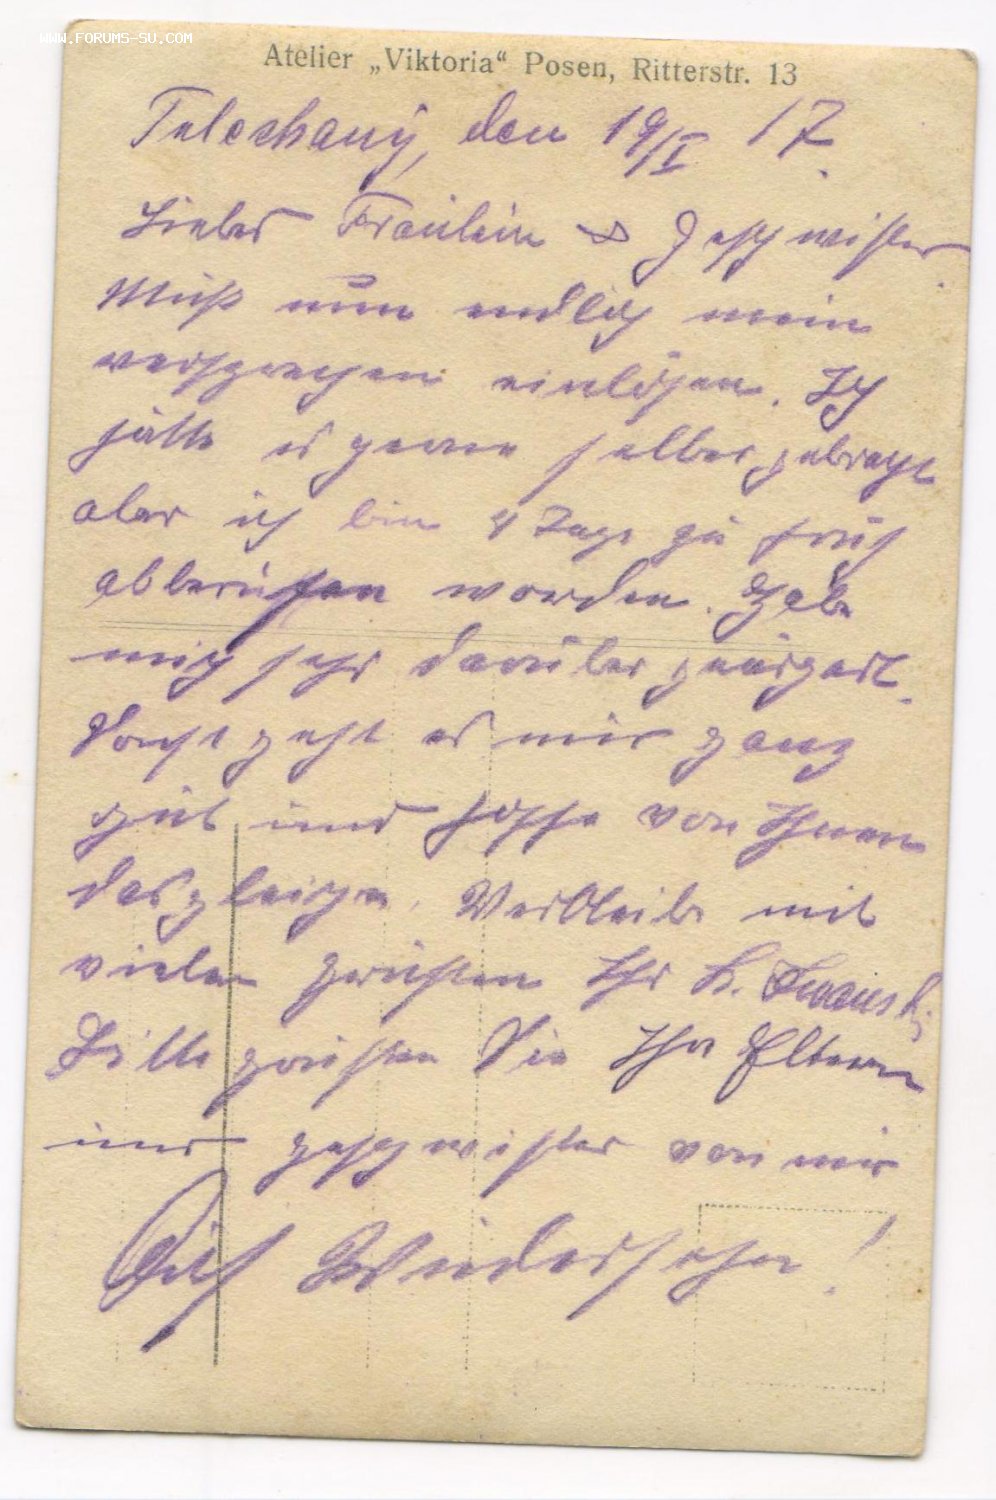 WWW.FORUMS-SU.COM
Atelier „Viktoria“ Posen, Ritterstr. 13
Telechany, den 19/I 17.
Liebes Fräulein & Geschwister.
Muß nun endlich mein
versprechen einlösen. Ich
hätte es gerne selber gebracht
aber ich bin 4 Tage zu früh
abberufen worden. Habe
mich sehr darüber geärgert.
Sonst geht es mir ganz
gut und hoffe von Ihnen
desgleichen. Verbleibe mit
vielen grüßen Ihr
Bitte grüßen Sie Ihre Eltern
und geschwister von mir
Auf Wiedersehen!